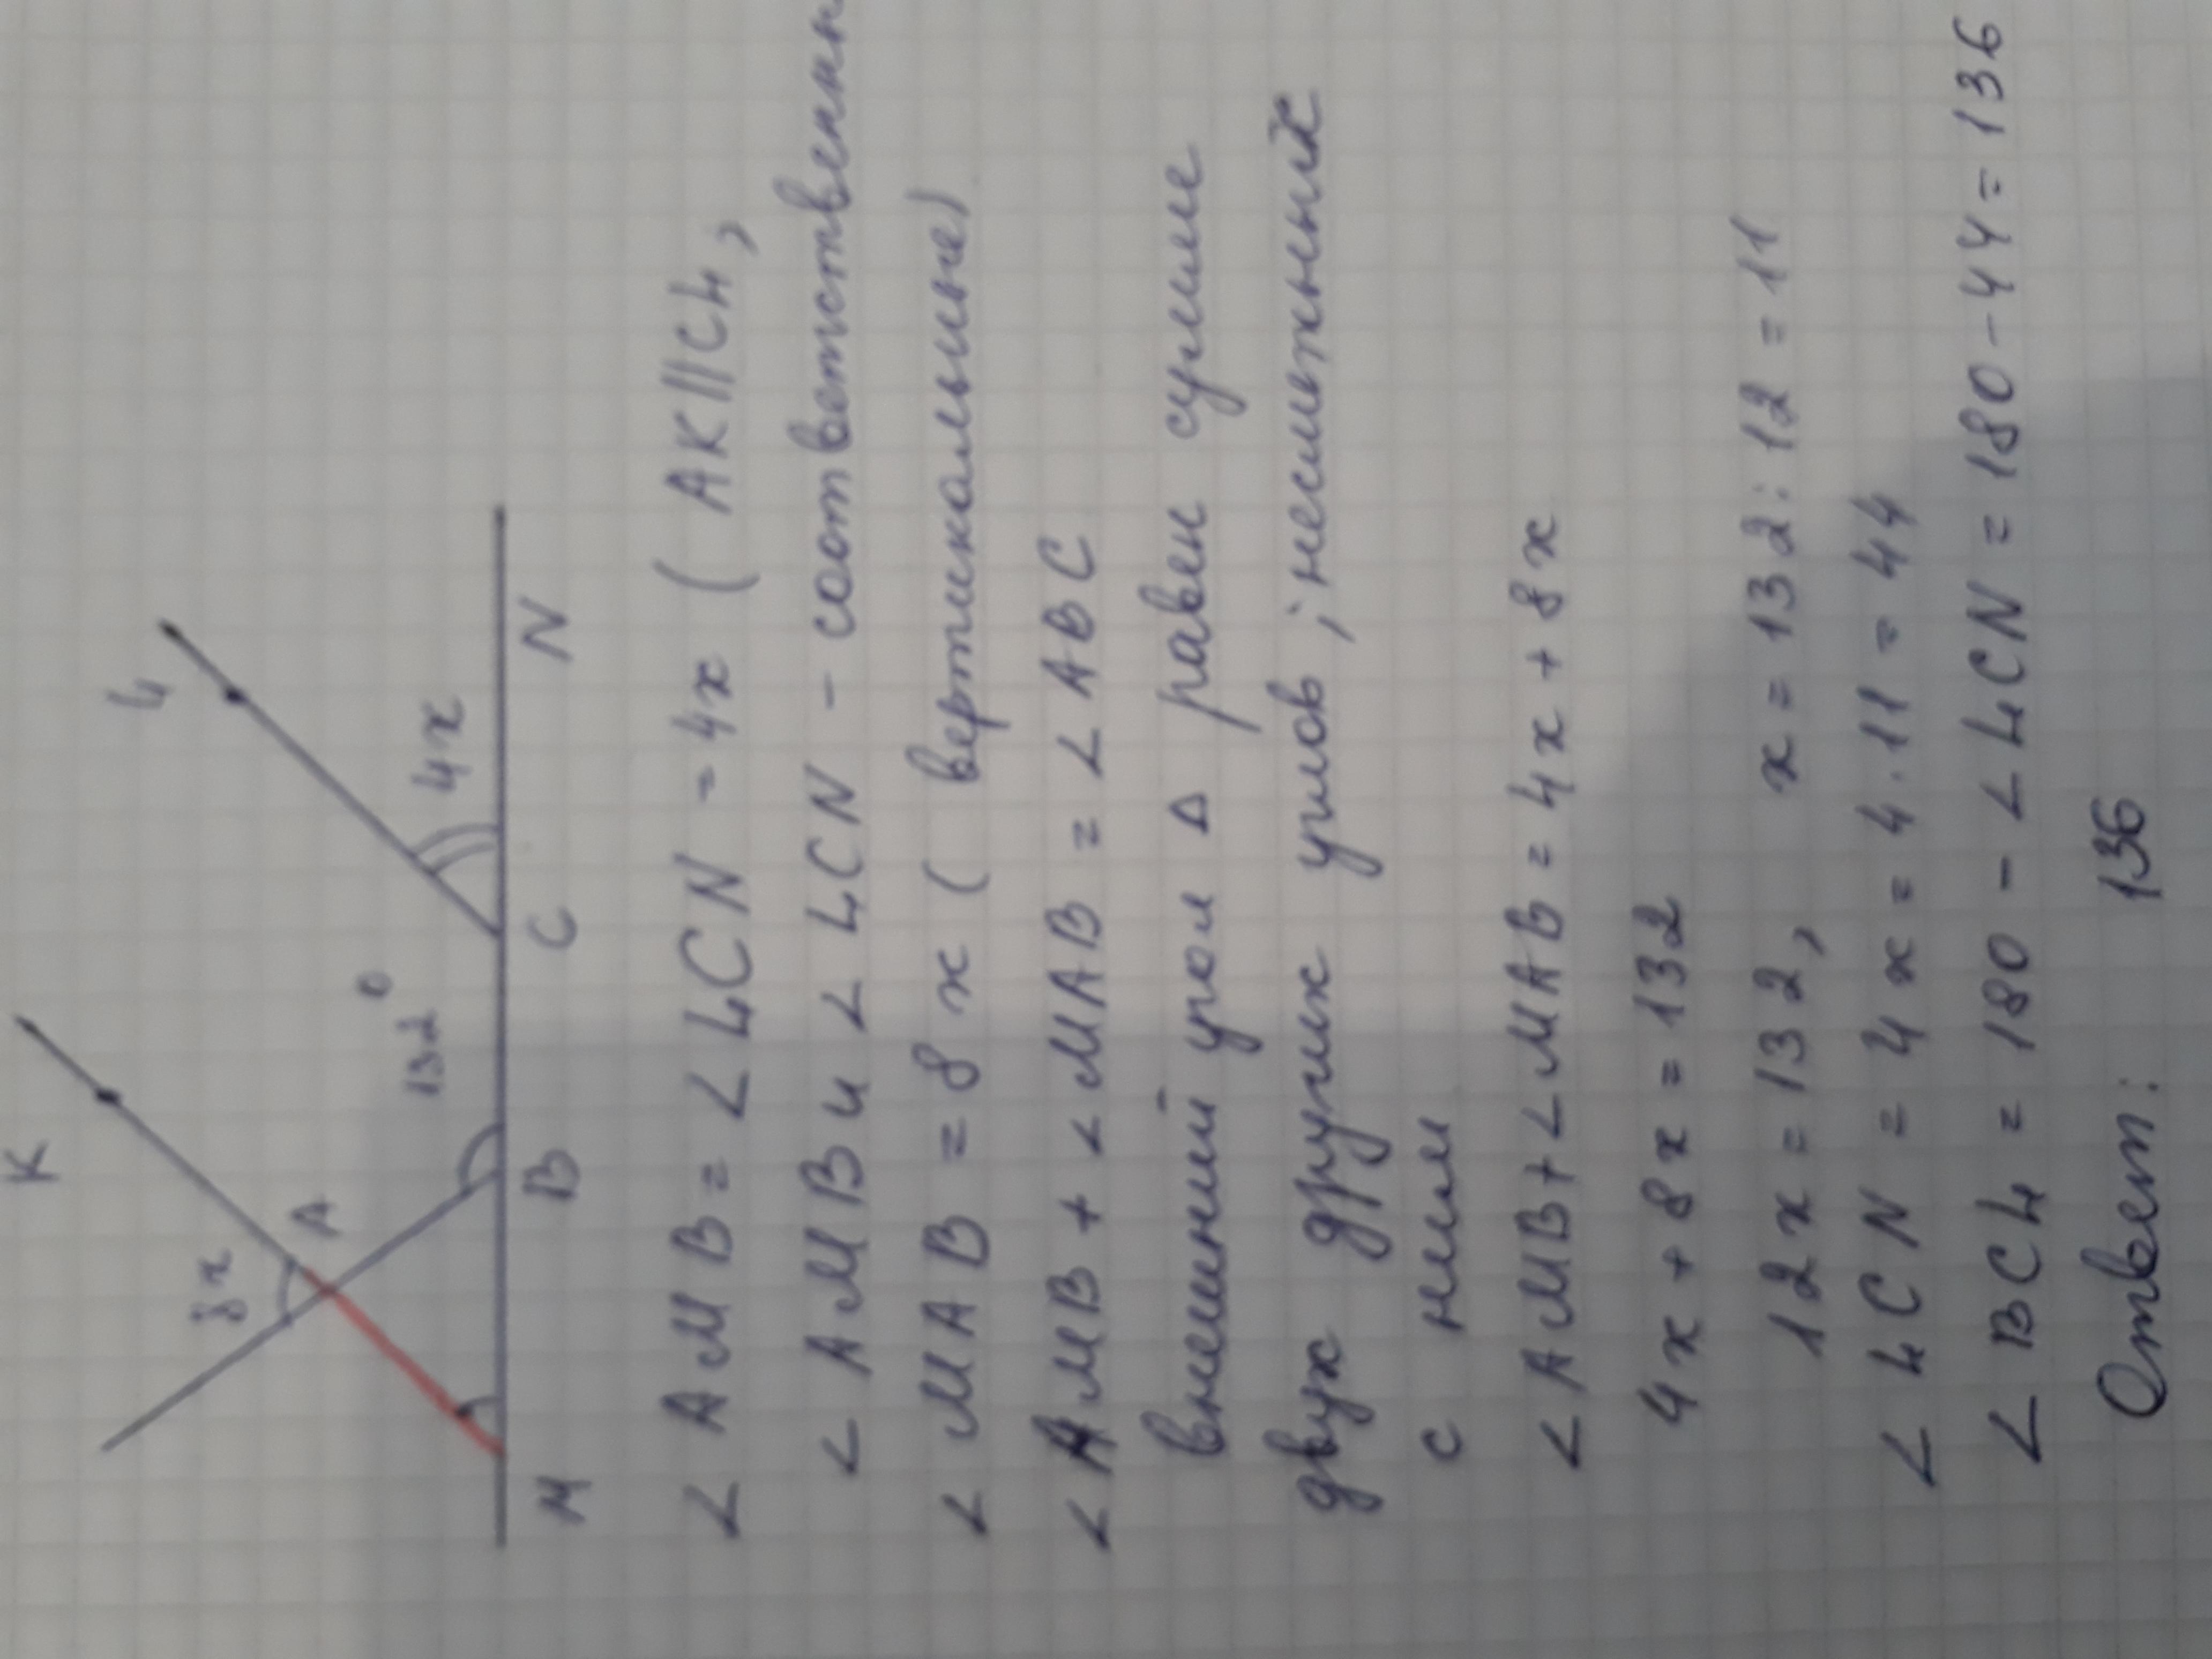 K
L
8x
A
132°
4x
M
B
C
N
∠ AMB = ∠ LCN = 4x ( AK||CL,
∠ AMB и ∠ LCN - соответственн
∠ MAB = 8x ( вертикальные)
∠ AMB + ∠ MAB = ∠ ABC
внешний угол Δ равен сумме
двух других углов, несмежных
с ним
∠ AMB + ∠ MAB = 4x + 8x
4x + 8x = 132
12x = 132, x = 132 : 12 = 11
∠ LCN = 4x = 4 · 11 = 44
∠ BCL = 180 - ∠ LCN = 180 - 44 = 136
Ответ: 136